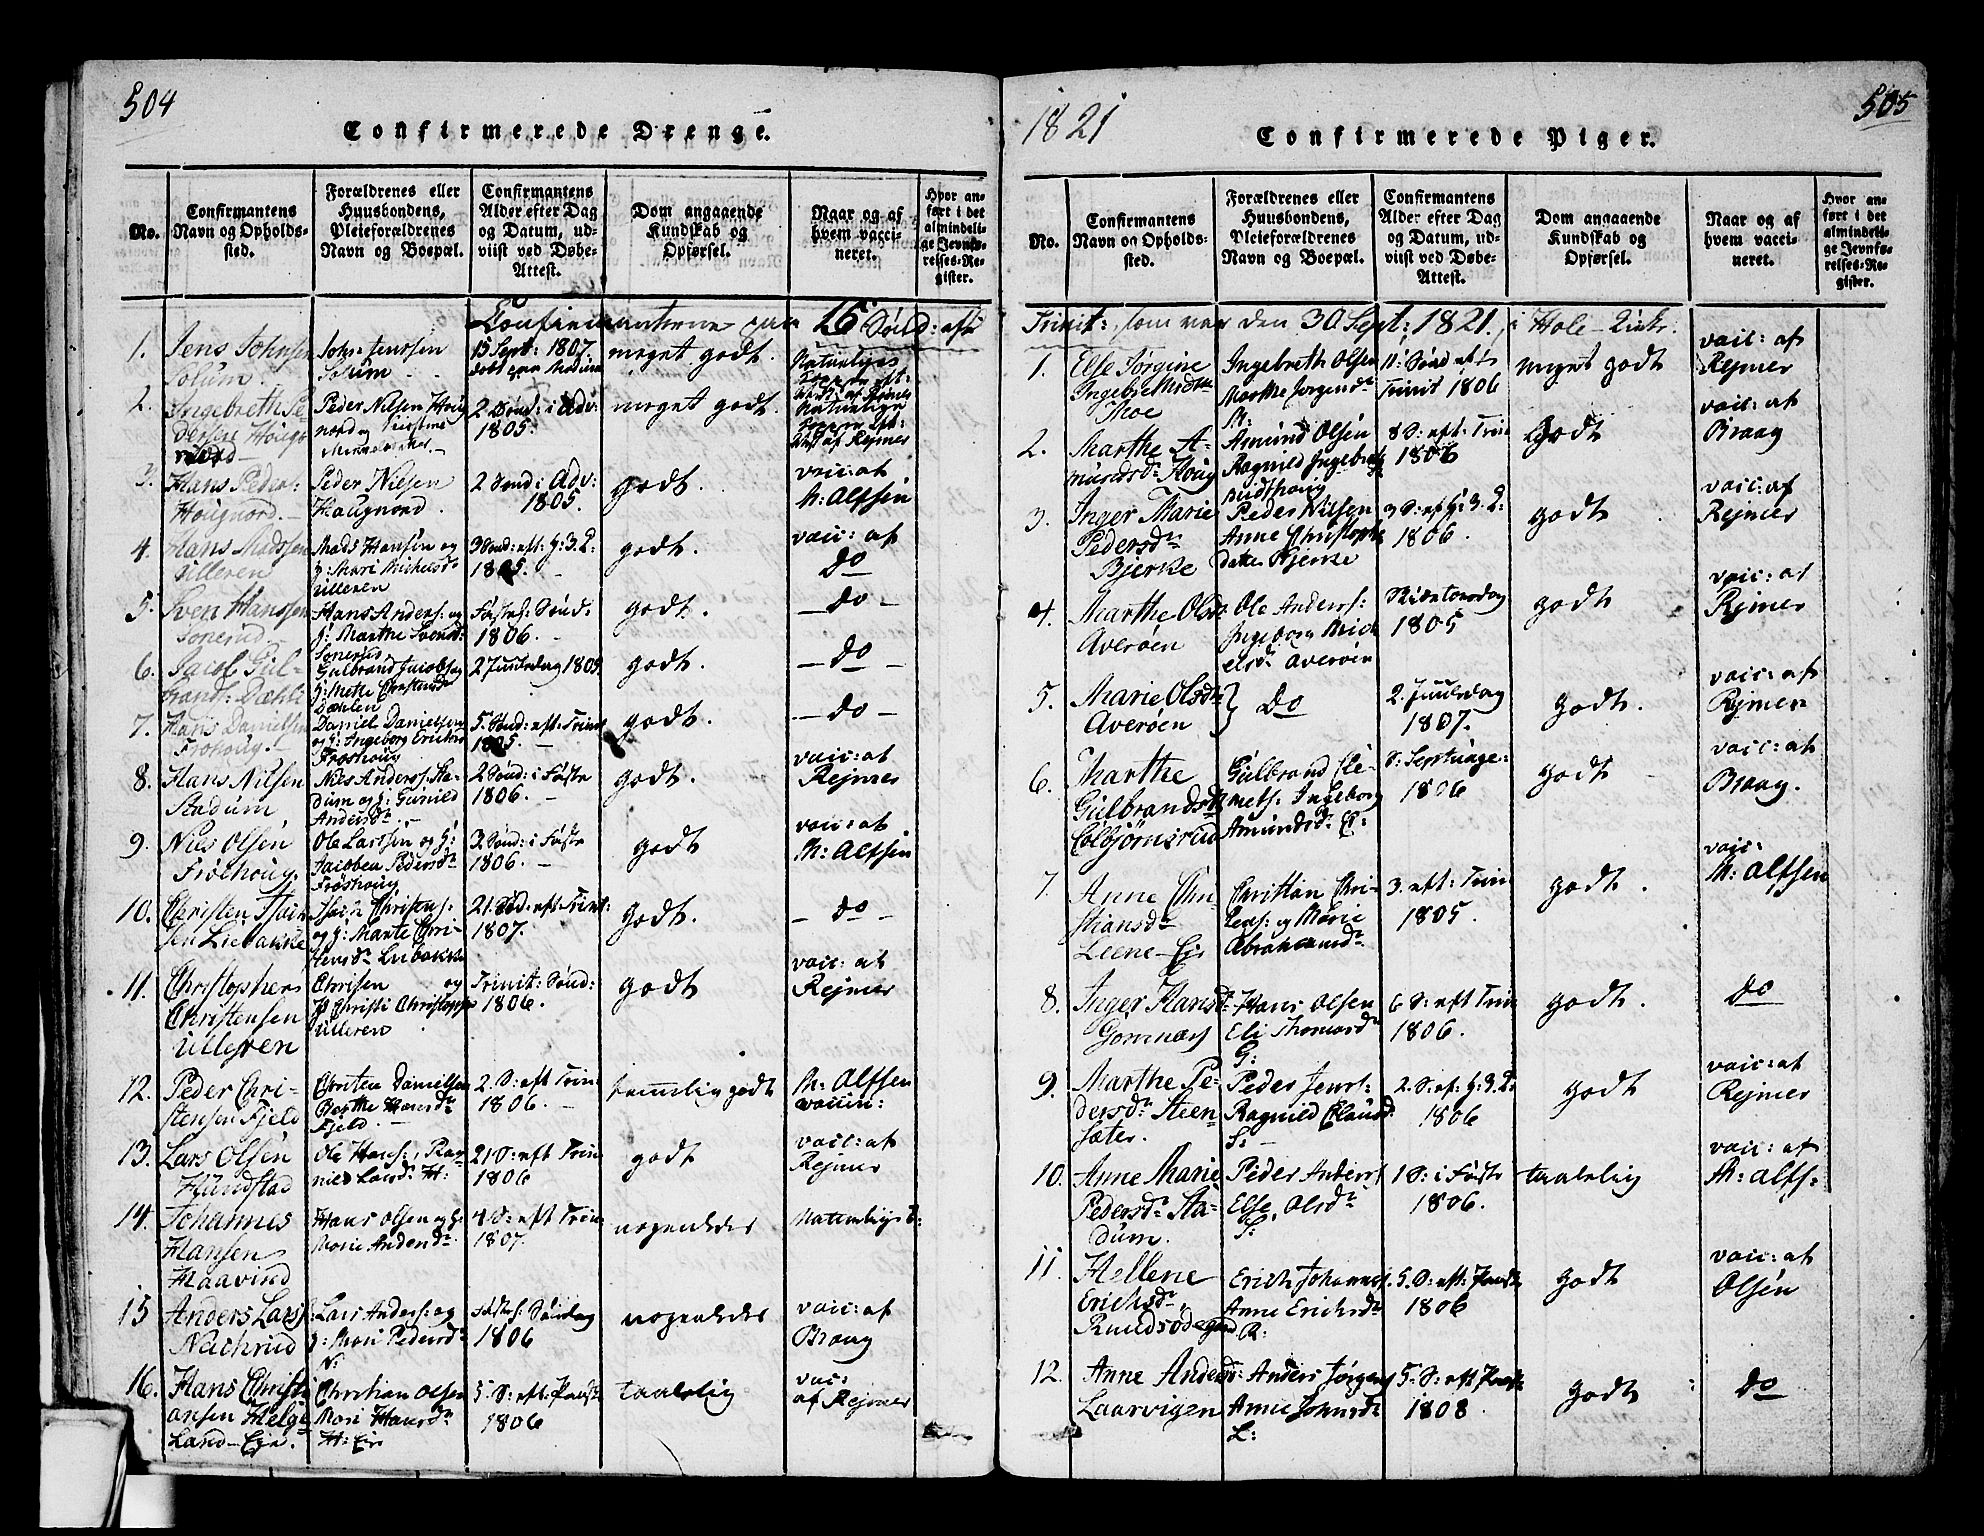 504
Confirmerede Drenge.
No.
Confirmantens
Navn og Opholds-
sted.
Forældrenes eller
Huusbondens,
Pleieforældrenes
Navn og Boepæl.
Confirmantens
Alder efter Dag
og Datum, ud-
viist ved Døbe-
Attest.
Dom angaaende
Kundskab og
Opførsel.
Naar og af
hvem vacci-
neret.
Hvor an-
ført i det
almindeli-
ge Jevnfø-
relses-Re-
gister.
Confirmanterne paa 15 Sønd: aft
1.
Jens Johnsen
Solum.
John Jenssen
Solum
15 Sept: 1807.
meget godt.
Naturlige
2.
Ingebreth Pe-
dersen Houg-
nord
Peder Nilsen Houg
nord og
2 Sønd: i Adv:
1805.
meget godt.
Naturlige
af Rejmer
3.
Hans Peders:
Hougnord.
Peder Nilsen
Hougnord.
2 Sønd: Adv:
1805.
godt.
vacc: af
M: Alfsen
4.
Hans Madssen
Ulleren
Mads Hansen og
H: Mari Michelsd
Ulleren
3 Sønd: eft: H: 3. K:
1805.
godt.
vacc: af
Do
5.
Sven Hanssen
Sonerud
Hans Anders: og
H: Marthe Svensd:
Sonerud
Fastel: Sønd:
1806.
godt.
Do
6.
Jacob Gul-
brands: Dæhli
Gulbrand Jacobs og
H: Mette Christensd
Dæhlen
2 Juuledag 1805
godt.
Do
7.
Hans Danielsen
Frøhoug.
Daniel Danielsen
og H: Ingeborg Ericksd
Frøshoug
5. Sønd: eft: Trinit
1805.
godt.
Do
8.
Hans Nilsen
Stadum
Nils Anderss: Sta-
dum og H: Gunild
Andersdr.
2 Sønd: i Faste
1806.
godt.
vacc: af
Rejmer
9.
Nils Olsen
Frøshoug.
Ole Larssen og H:
Jacobea Pedersdr
Frøshoug
3. Sønd: i Faste
1806.
godt
vacc: af
M: Alfsen
10.
Christen Isach
sen Liebakke
Isach Christens:
og H: Marte Chri-
stensd. Liebakke
21. Sød: eft: Trint:
1807.
godt.
Do
11.
Christophers
Christensen
Ulleren
Christen og
Christi Christophs
Ulleren
Trinit: Sønd:
1806.
godt
vacc: af
Rejmer
12.
Peder Chri-
stensen Fjeld
Christen Danielsen
Berthe Hansdr
Fjeld.
2. S: eft Trin
1806.
temmelig godt
M: Alfsen
vaccin:
13.
Lars Olsen
Hundstad
Ole Hans:, Rag-
nild Larsd: H:
21 S: eft Trin
1806
godt
vacc: af
Rejmer
14.
Johannes
Hansen
Haavind
Hans Olsen og H:
Mari Andersdr.
4. S: eft Trin
1807.
nogenledes
Naturlig
15
Anders Lars:
Nachrud
Lars Anders: og
H: Mari Pedersdr
N:
Faste: Søndag
1806
nogenledes
vacc: af
Braag
16.
Hans Christi
ansen Helge
Land – Eje.
Christian Olsen
Mari Hansdr
H: Eje
5. S: eft: Paaske
1806
taalelig
vacc:
af Rejmer
1821
505
Confirmerede Piger.
No.
Confirmantens
Navn og Opholds-
sted.
Forældrenes eller
Huusbondens,
Pleieforældrenes
Navn og Boepæl.
Confirmantens
Alder efter Dag
og Datum, ud-
viist ved Døbe-
Attest.
Dom angaaende
Kundskab og
Opførsel.
Naar og af
hvem vacci-
neret.
Hvor an-
ført i det
almindeli-
ge Jevnfø-
relses-Re-
gister.
Trinit:, som var den 30 Sept: 1821. i Hole-Kirke.
1.
Else Jørgine
Ingebrethsdtr
Moe
Ingebreth Olsen
Marthe Jørgensdr
M.
11: Sønd eft
Trinit 1806
meget godt
vacc: af
Rejmer
2.
Marthe A-
mundsd: Houg
Amund Olsen
Ragnild Ingebrets
8 S: eft: Trin
1806
Godt
vacc: af
Braag
3.
Inger Marie
Pedersdr
Bjerke
Peder Nilsen
Anne Christopher
datter Bjerke
3 S: eft H: 3. K:
1806.
godt
vacc: af
Rejmer
4.
Marthe Olsd
Averøen
Ole Anders:
Ingeborg Mich
elsd: Averøen
Skiertorsdag
1805
godt
vacc: af
Rejmer
5.
Marie Olsdtr
Averøen
Do
2. Juuledag
1807.
godt.
vacc: af
Rejmer
6.
Marthe
Gulbrandsdr
Colbjørnsrud
Gulbrand Cle-
mets: Ingeborg
Amundsdr. C:
S: Septuage:
1806
godt
vacc: af
Braag.
7.
Anne Chri-
stiansdr
Leene – Eje
Christian Chri-
stens: og Marie
Abrahamsdr.
3. eft: Trin
1805.
godt.
vacc:
M: Alfsen
8.
Inger Hansdr
Gomnæs
Hans Olsen
Eli Thomasdr
G:
6 S: eft Trin
1806.
godt.
Do
9.
Marthe Pe-
dersdr. Steen
sæter.
Peder Jens:
Ragnild Clausd:
S:
2. S: ef: H: 3. K:
1806
godt
vacc: af
Rejmer
10.
Anne Marie
Pedersdr. Sta-
dum.
Peder Anders:
Else Olsdr.
S:
1 S: i Faste
1806.
taalelig
vacc: af
M: Alfs:
11.
Hellene
Erichsdr.
Rundsødegaard.
Erich Johannes:
Anne Erichsdr
R:
5. S: eft: Paaske
1806
godt
vacc: af
Olsen
12.
Anne Andersd:
Laarvigen
Anders Jørgens
Anne Johnsdr
L:
5. S: eft Paaske
1808
godt
Do